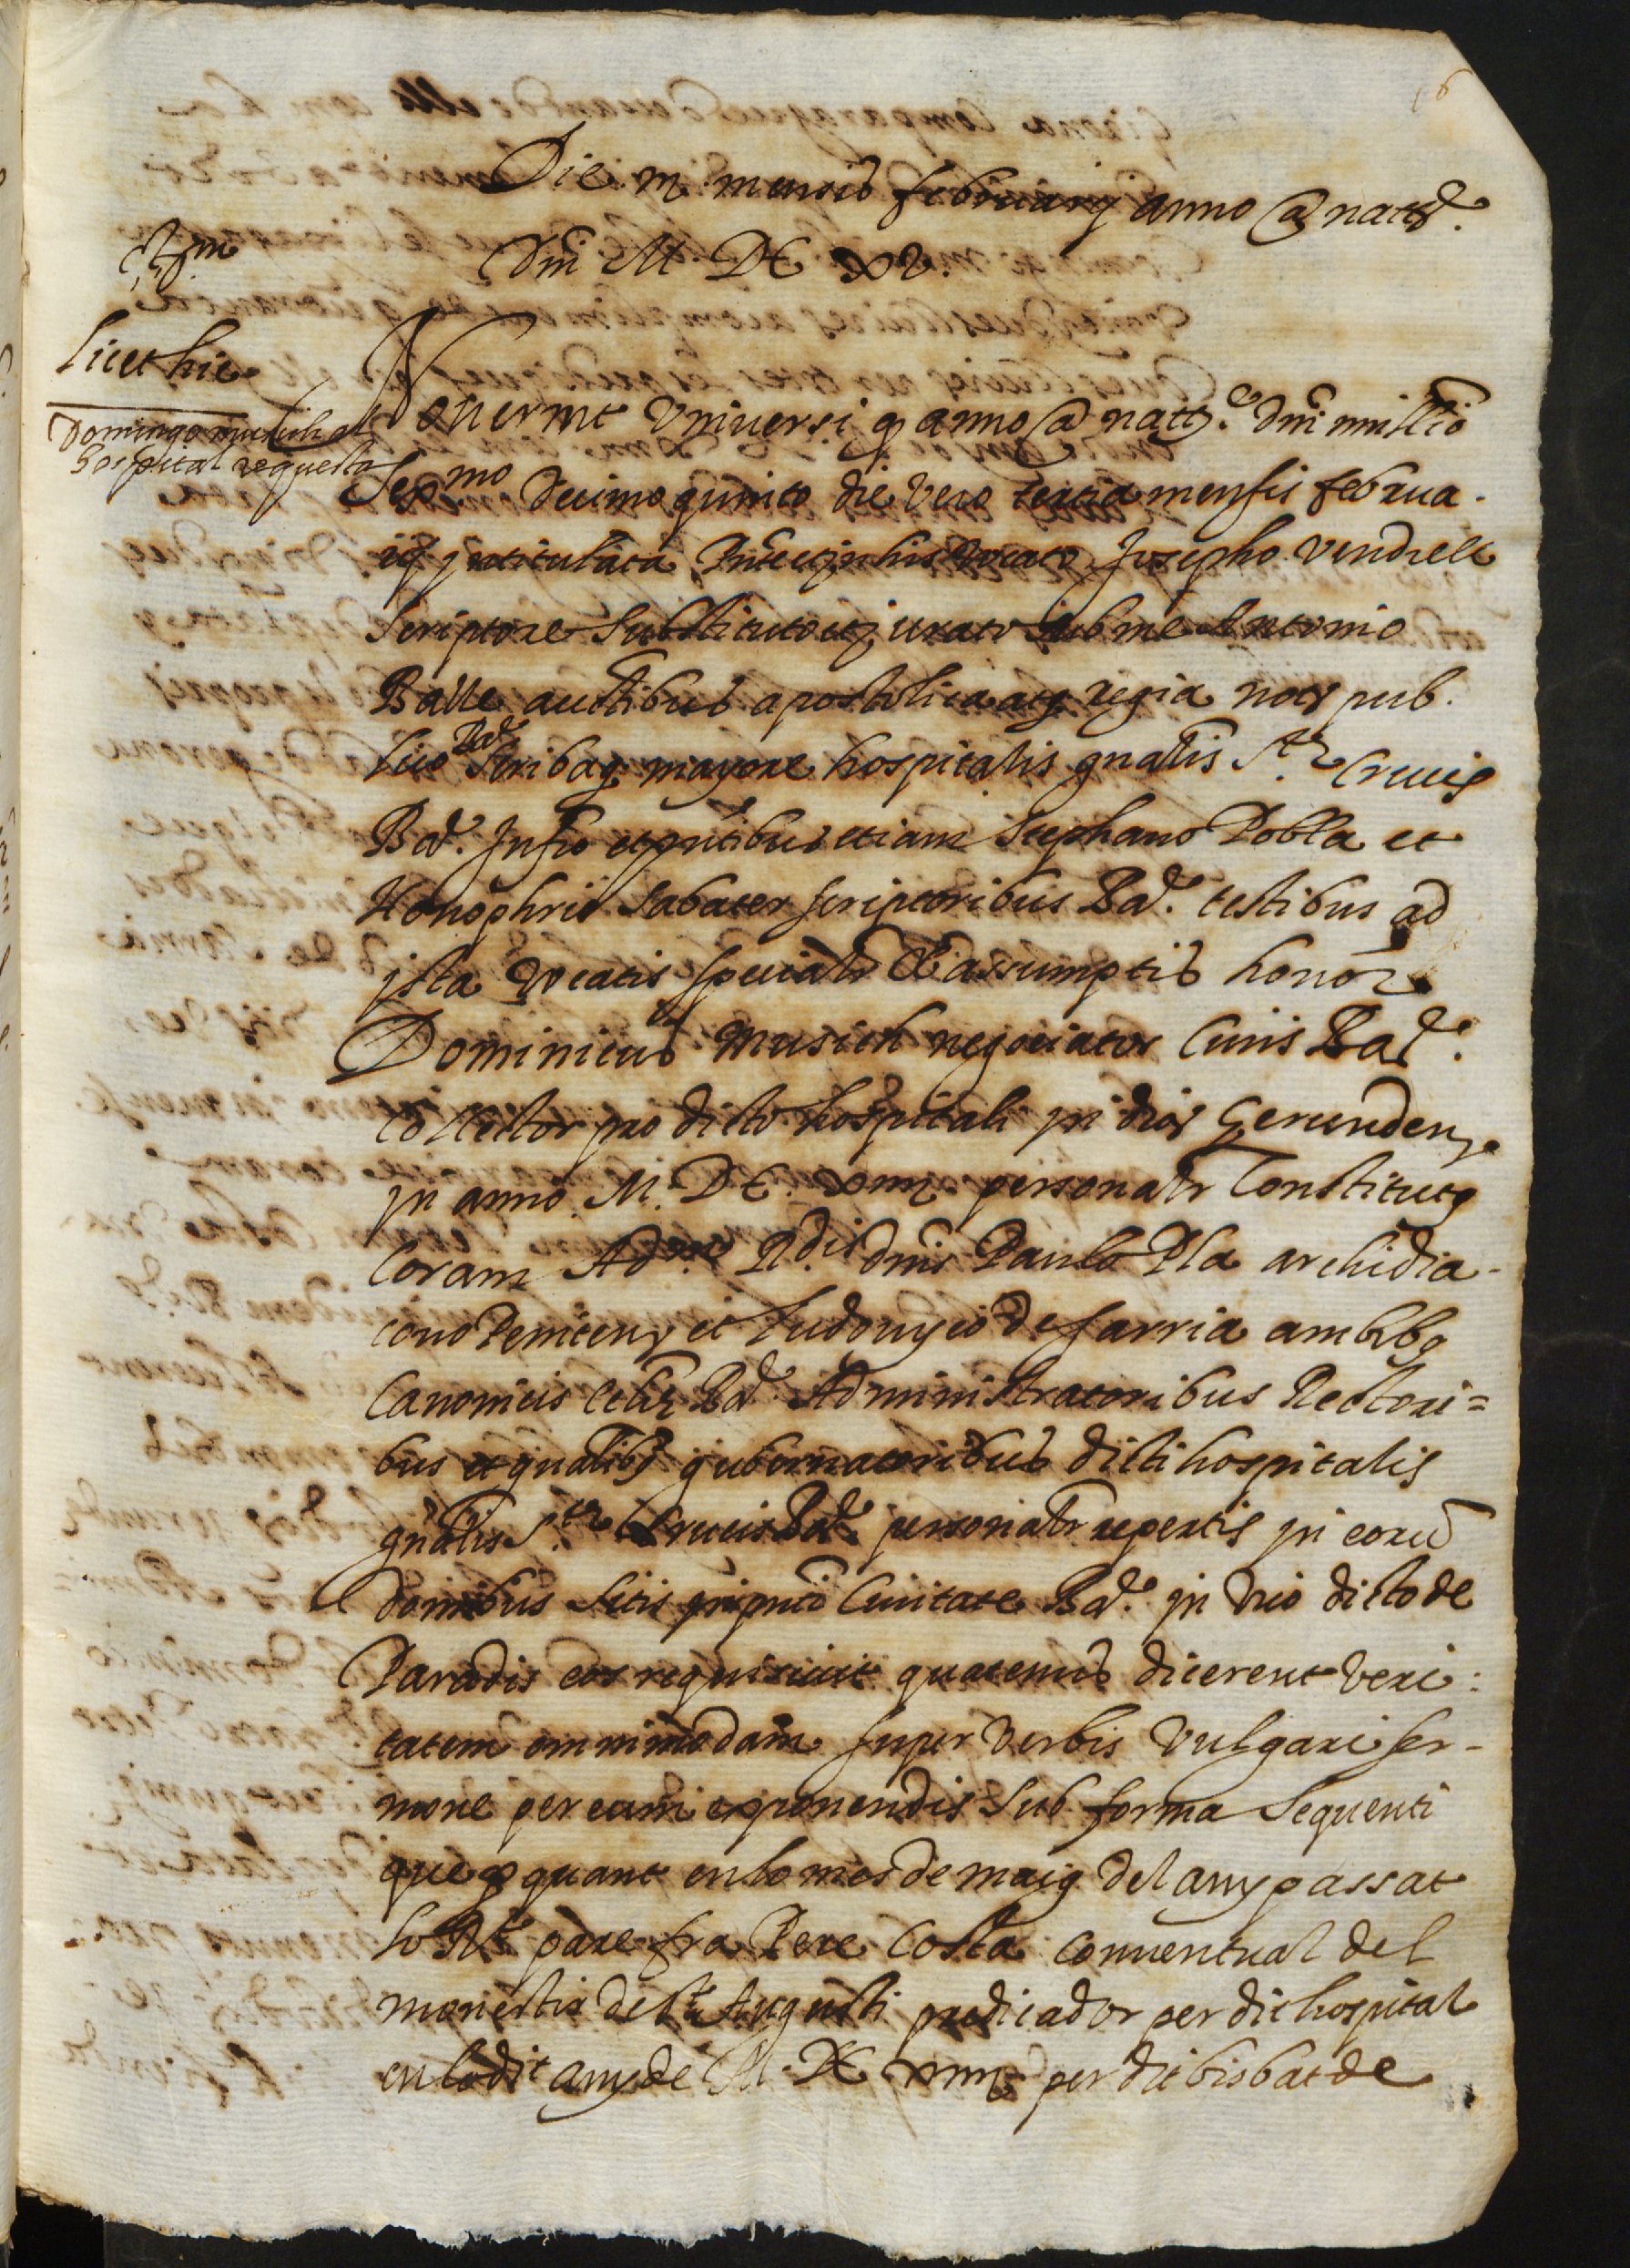 Die iij mensis februarij anno @ natte
Dni M DC XV.
licet hic
Domingo musich al
hospital requesta
Noverint Universi q anno @ natte Dni millio
Sexmo Decimo quinto die vero tertia mensis februa-
rij intitulata vocato Josepho Vendrell
scriptore substituto et jurato sub me Antonio
Batlle auctibus apostolica atq regia noty pub.
lico Bar scribaq majore hospitalis gnalis Ste Crucis
Bar. Infro et pntibus etiam Stephano Pobla et
Honophrio Sabater scriptoribus Bar. testibus ad
ista vocatis specialr & assumptis honor
Dominicus Musich negociator Civis Bar.
collector pro dicto hospitali in dioz Gerunden
in anno M. DC. xiiij personalr Constitutq
Coram Adm Rdis dnis Paulo Pla archidia-
cono Peniteny et Ludovyco de Sarria ambbq
Canonicis Bar Administratoribus Rectori=
bus et gnalibq gubernatoribus dicti hospitalis
gnalis Ste Crucis Bar personalr repertis in eoru
domibus sitis in pnti Civitate Bar. in vio dicto de
Paradis eos requisivit quatenus dicerent veri:
tatem omnimodam super verbis vulgari ser-
mone per eum exponendis sub forma sequenti
que p quant en lo mes de maig del any passat
lo Rt pare fra Pere Costa conventual del
monestir de St Augusti predicador per dit hospital
en lo dit any de M. DC xiiij per dit bisbat de